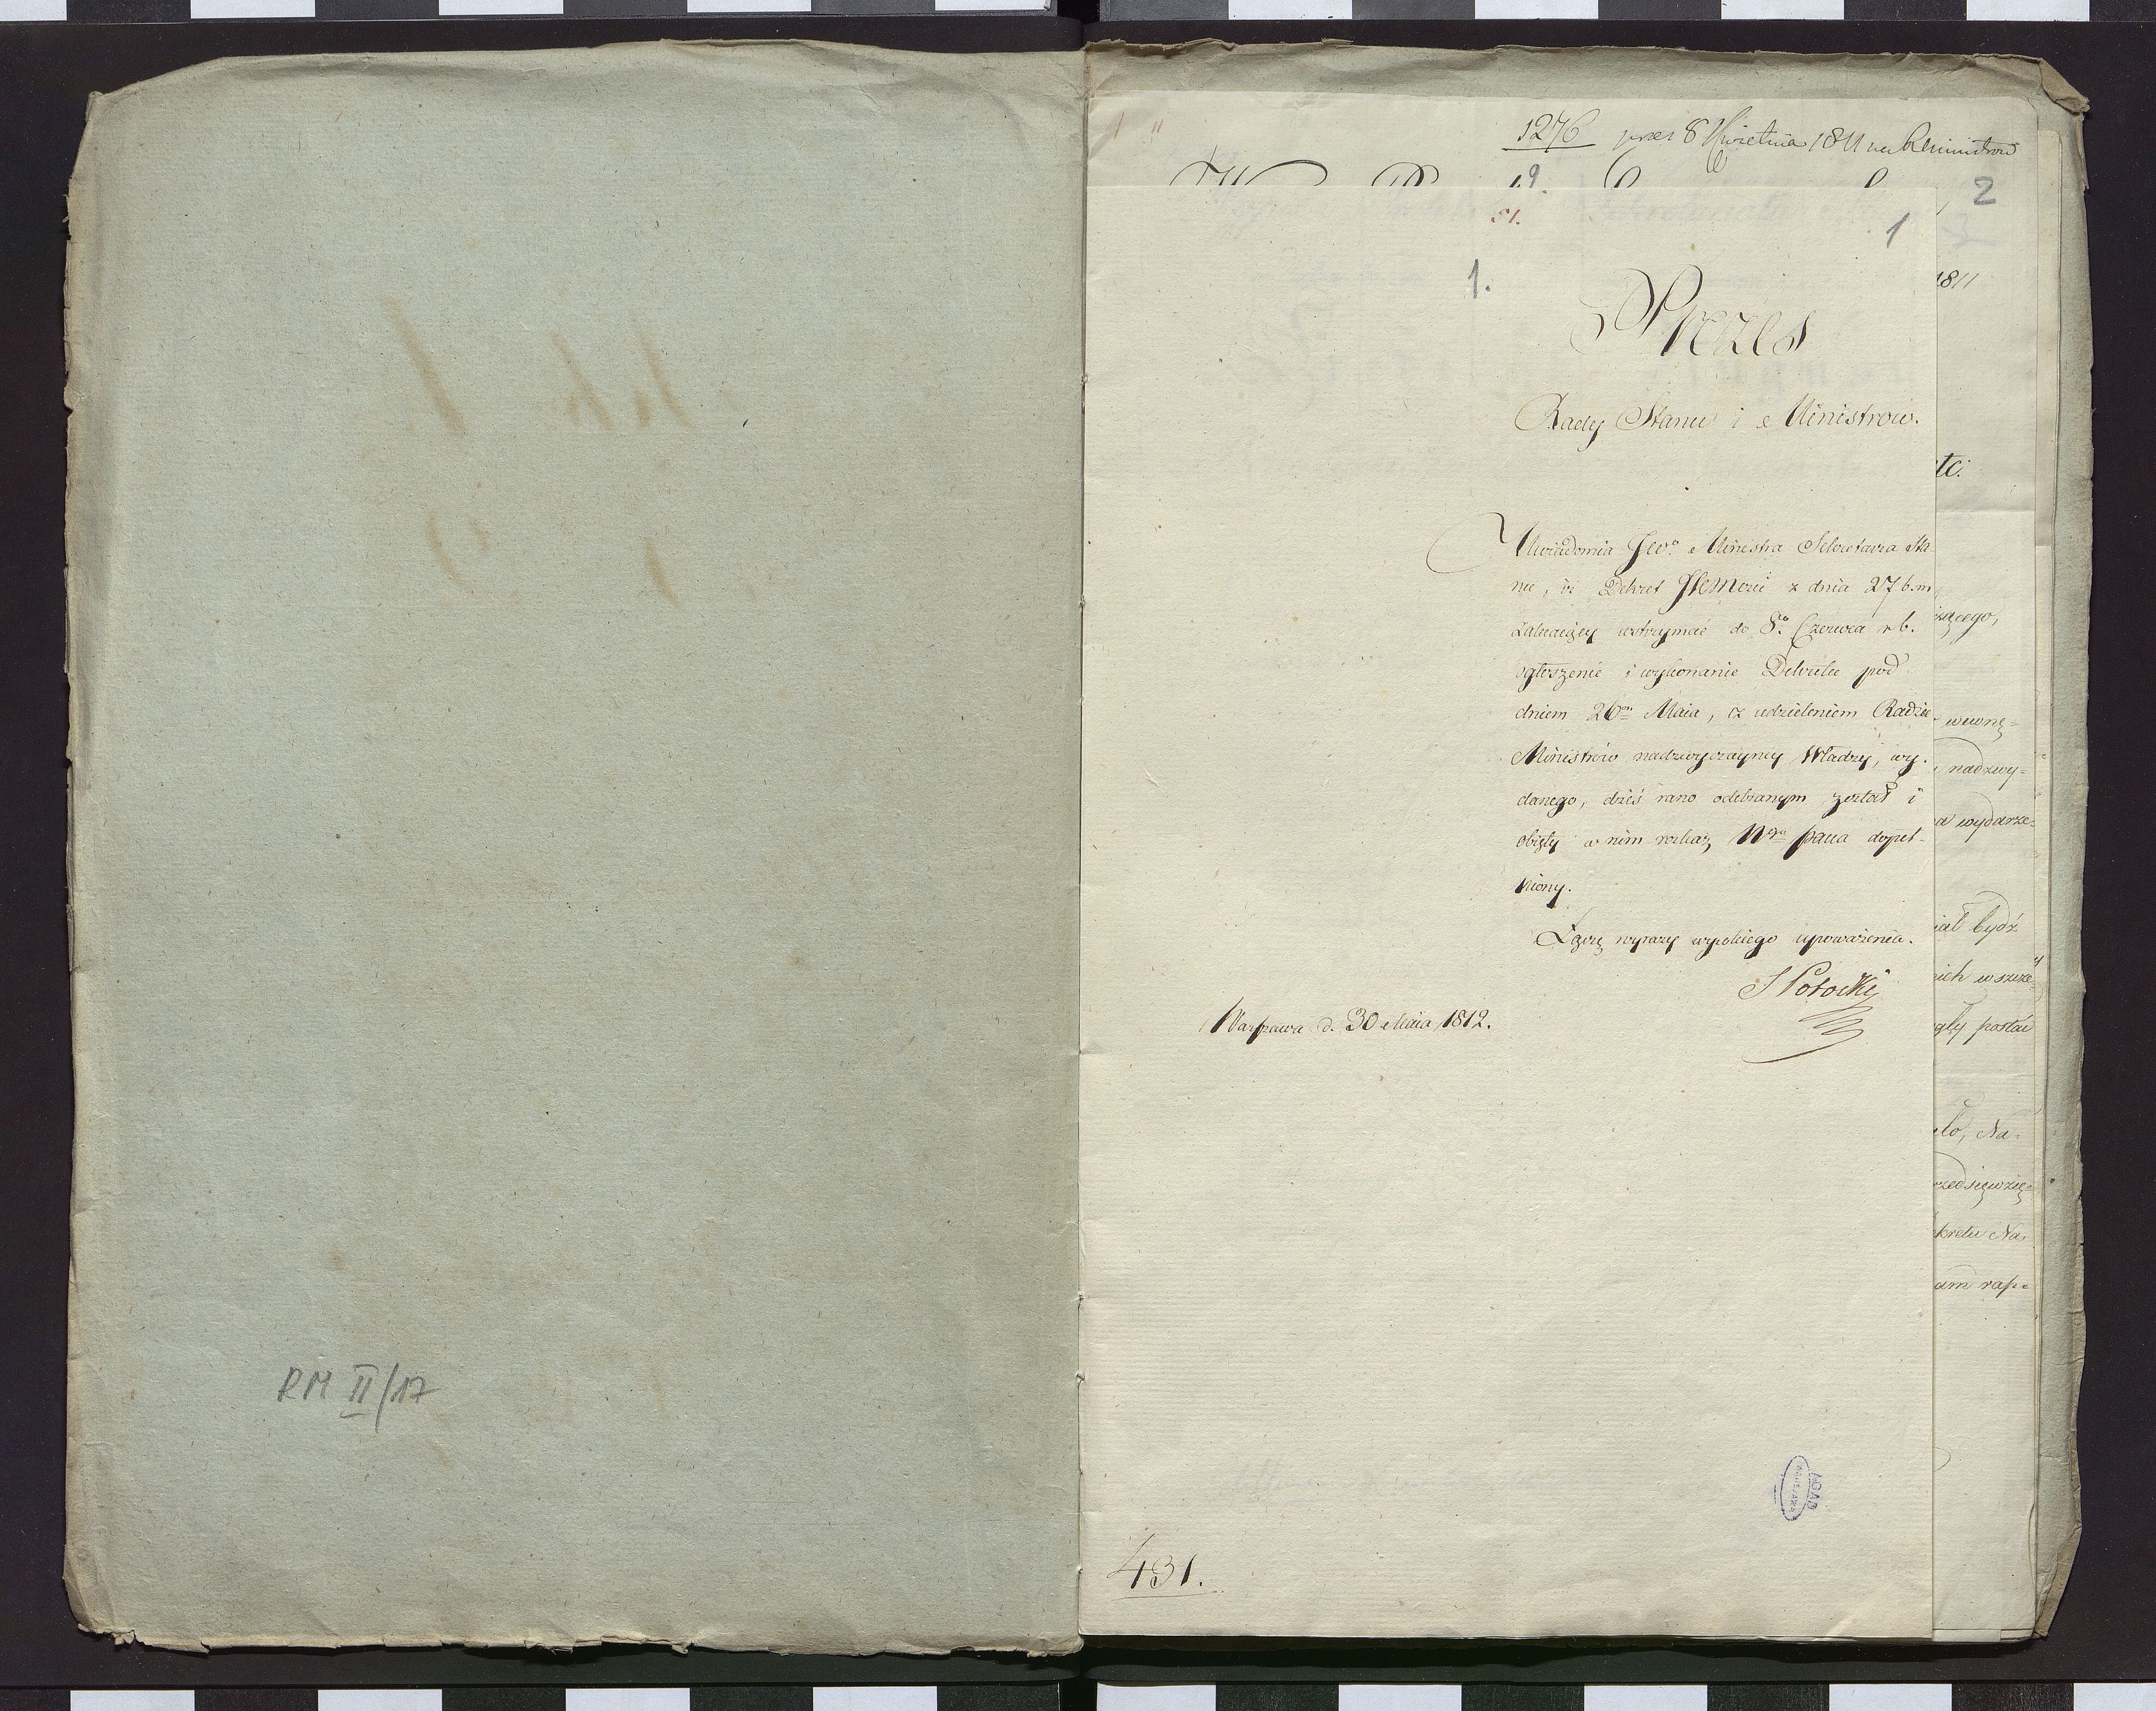 RM II/17
1276 prez 8 Kwietnia 1811 na R Ministrów
19.
2
51.
1
1.
1811
Prezes
Rady Stanu i Ministrow.
etc:
Uwiadomia JWo Ministra Sekretarza Sta
nu, iż Dekret JKMCi z dnia 27 b.m,
zalecaiący wstrzymać do 8o Czerwca r b.
ogłoszenie i wykonanie Dekretu pod
dniem 26m Maia, z udzieleniem Radzie
Ministrów nadzwyczayney Władzy, wy-
danego, dziś rano odebranym został i
obięty w nim rozkaz Ngo Pana dopeł-
niony.
Łączę wyrazy wysokiego upoważenia.
S Potocki
Warszawa d. 30 Maia 1812.
wewnę=
nadzwy=
wydarze=
bydź
postać
Na=
AGAD
WARSZAWA
431.